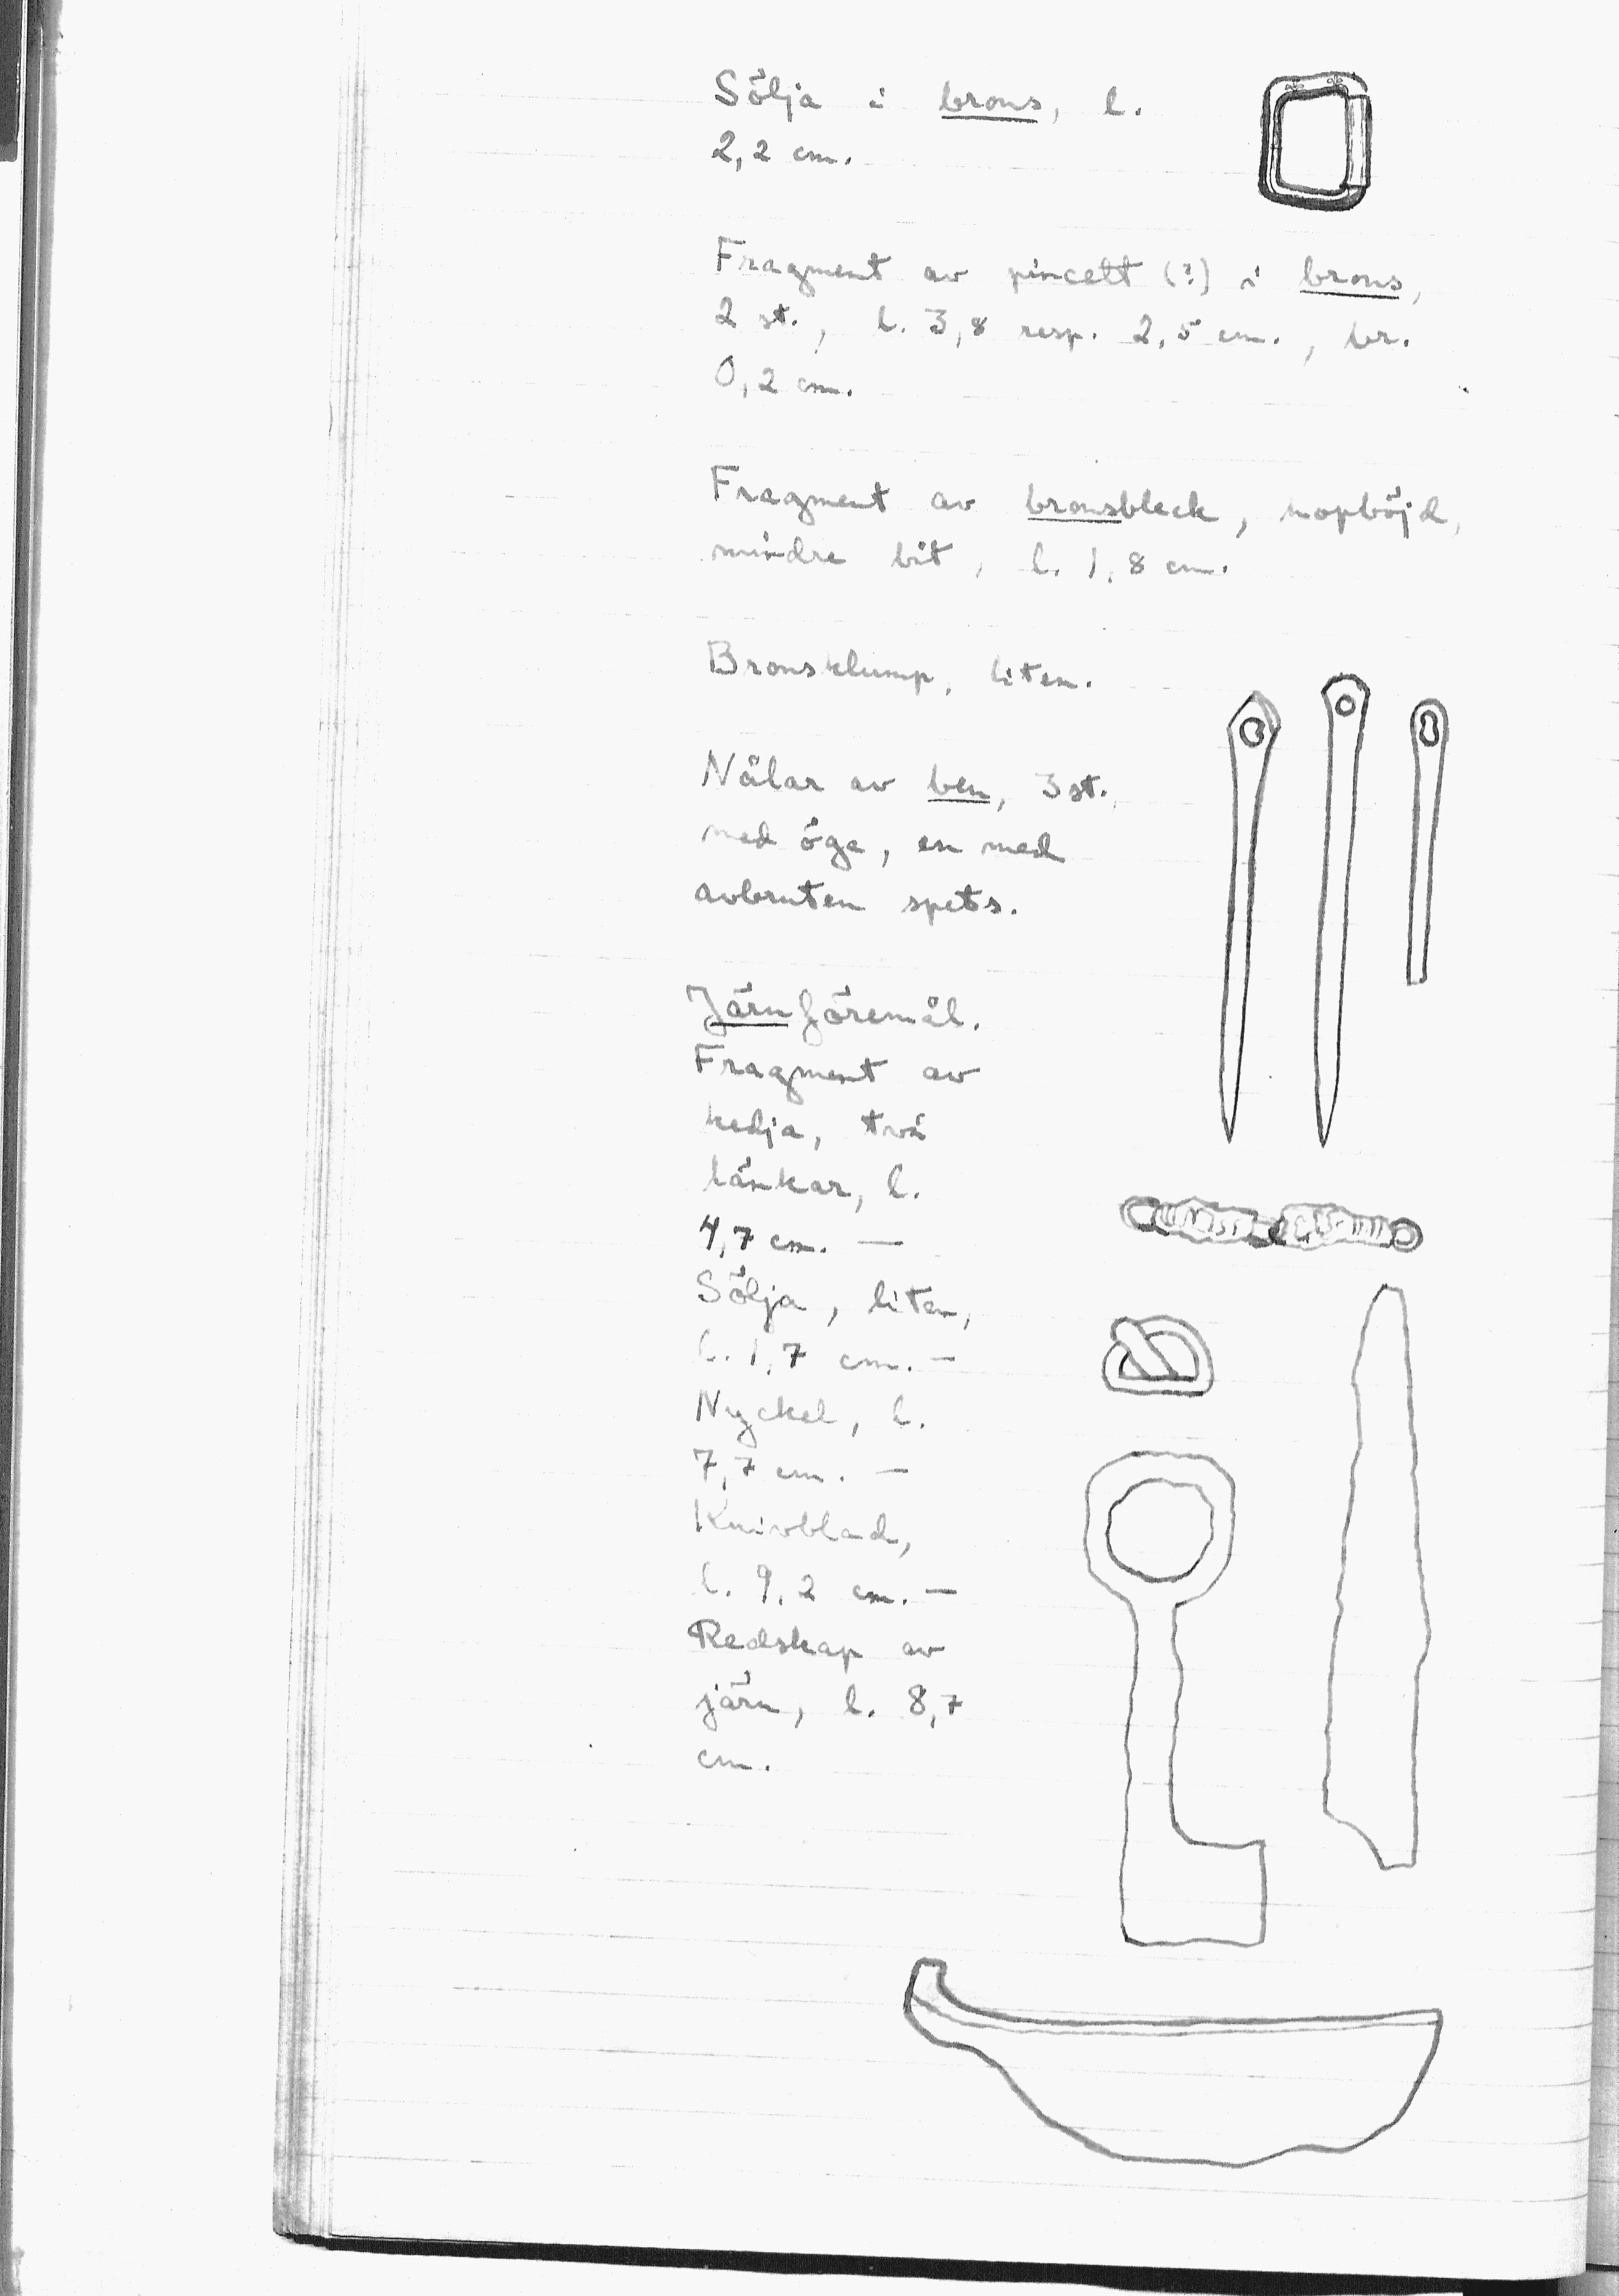 Sölja i brons, l.
2,2 cm.
Fragment av pincett (?) i brons,
2 st., l. 3,8 resp. 2,5 cm., br.
0,2 cm.
Fragment av bronsbleck, hopböjd,
mindre bit, l. 1,8 cm.
Bronsklump, liten.
Nålar av ben, 3 st.
med öga, en med
avbruten spets.
Järnföremål.
Fragment av
kedja, två
länkar, l.
4,7 cm. —
Sölja, liten,
l. 1,7 cm. —
Nyckel, l.
7,7 cm. —
Knivblad,
l. 9,2 cm. —
Redskap av
järn, l. 8,7
cm.